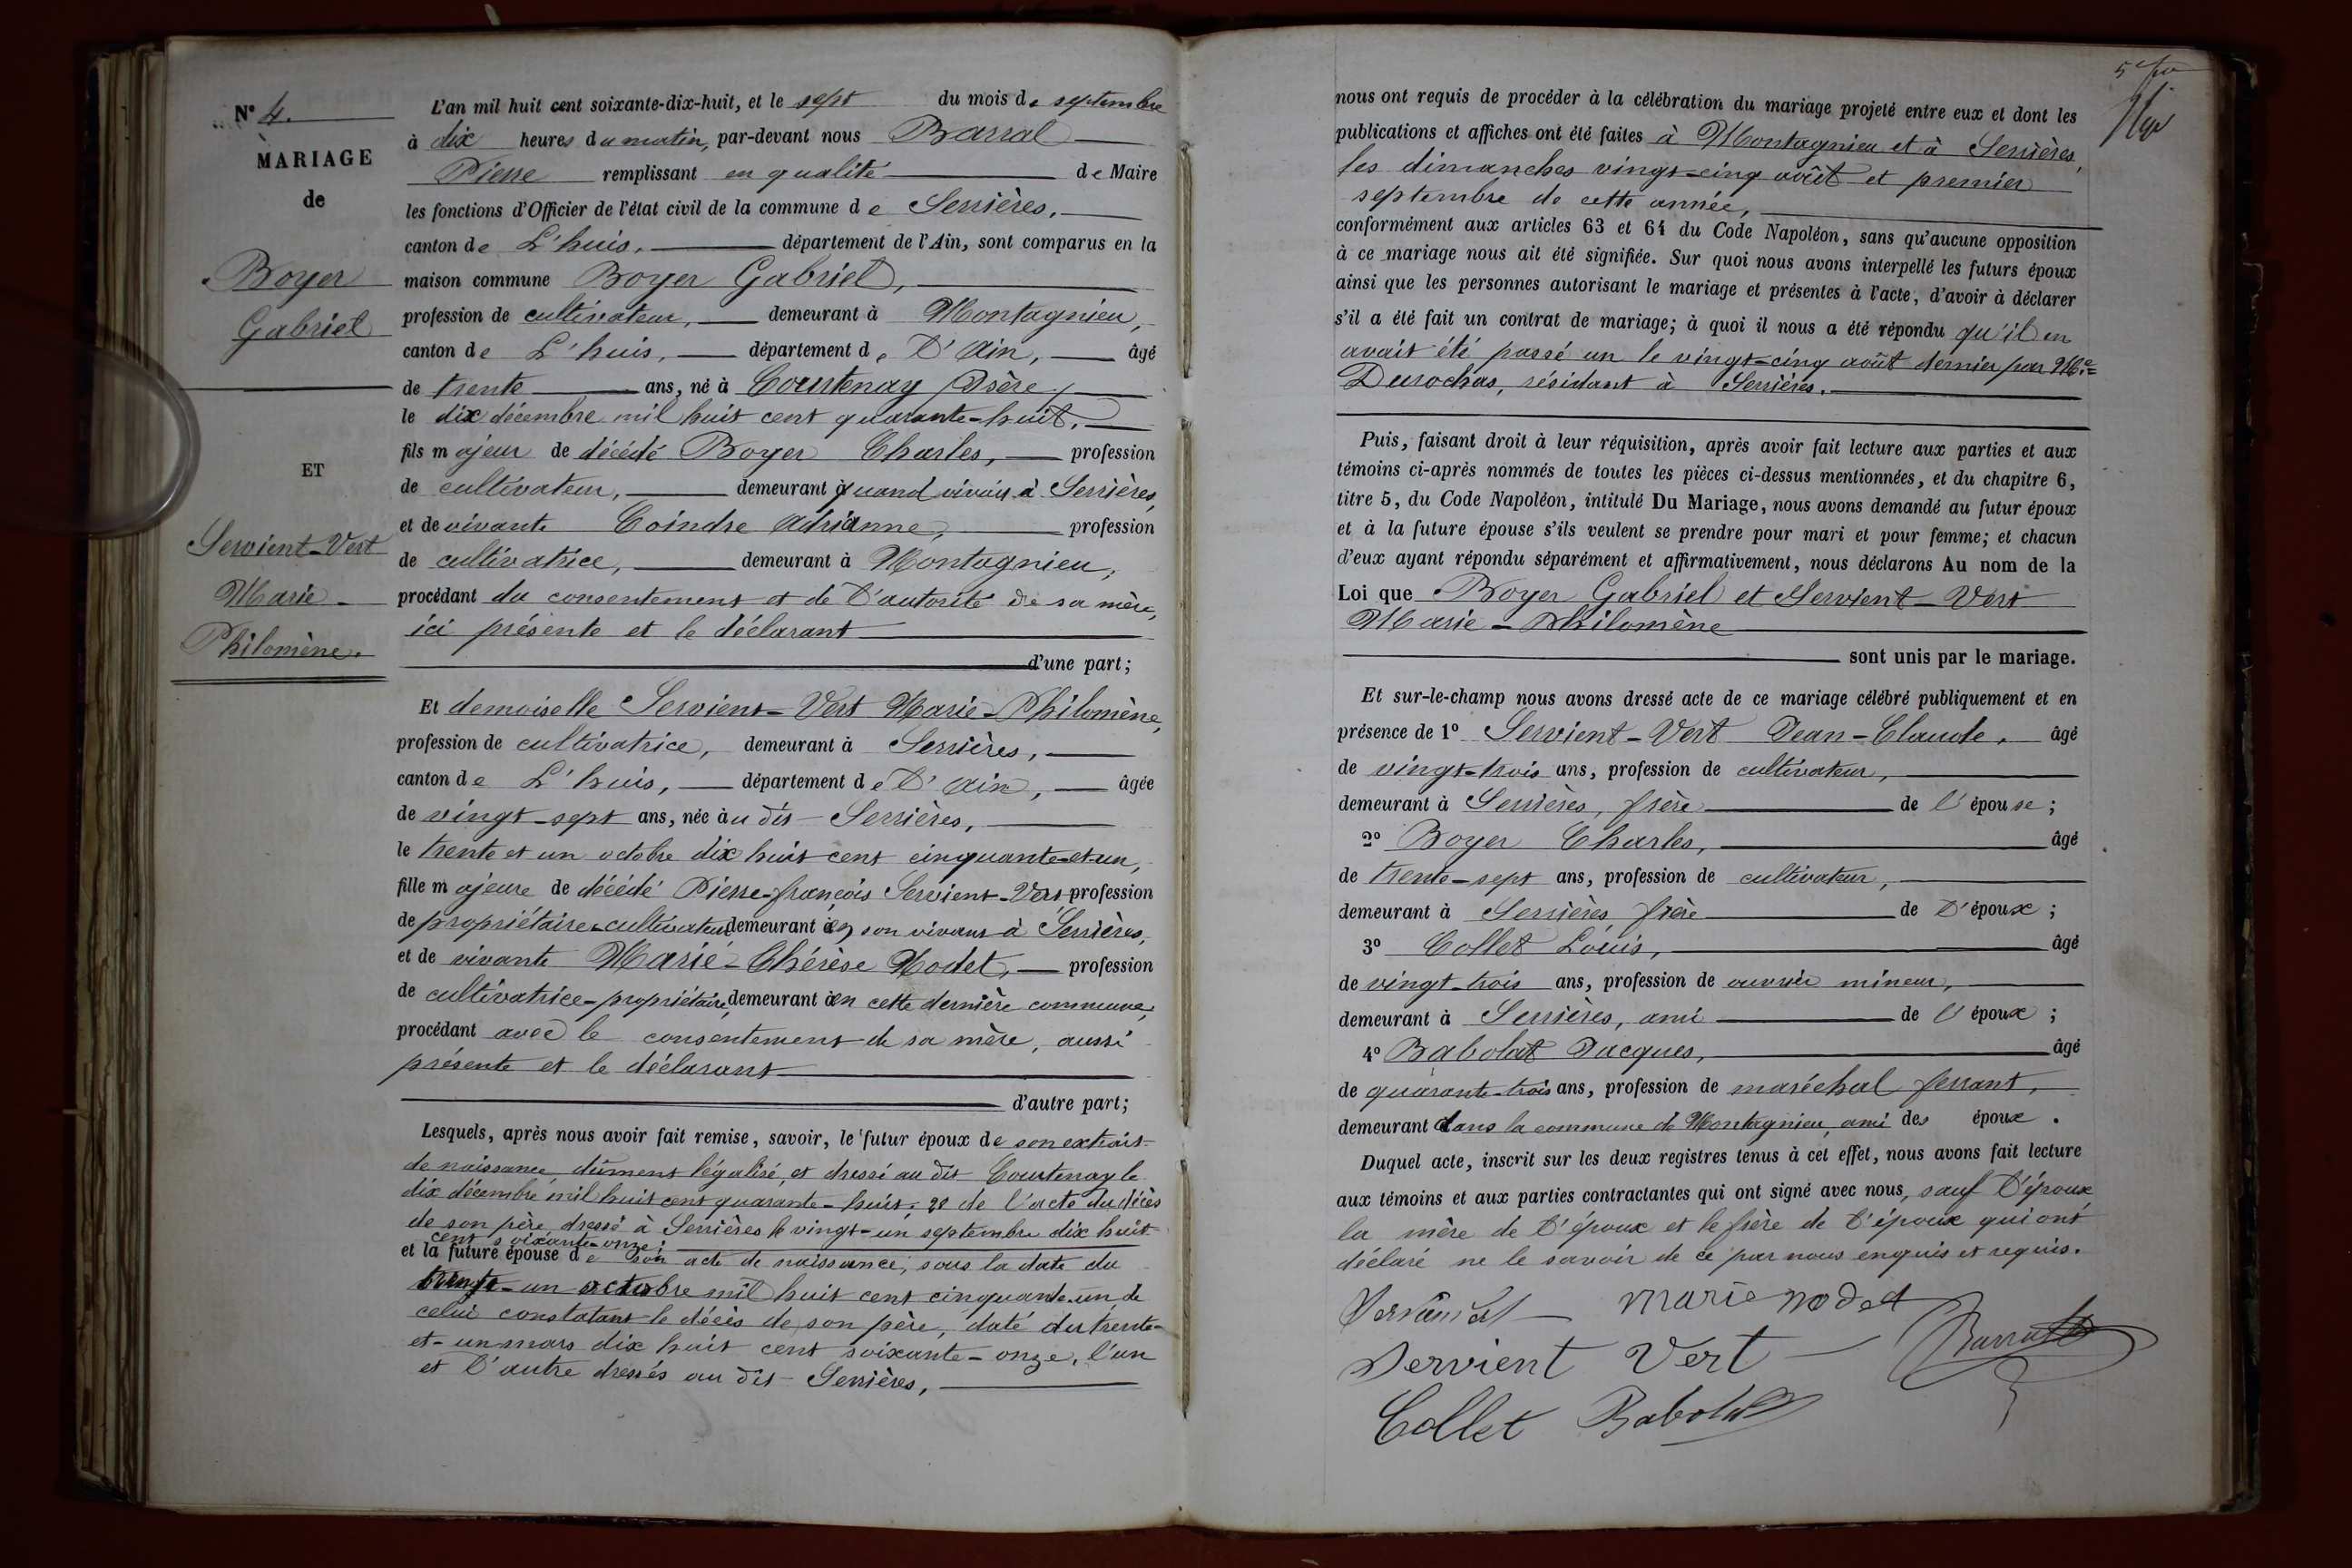 N° 4.
MARIAGE
de
Boyer
Gabriel
ET
Servient-Vert
Marie-
Philomène.
L'an mil huit cent soixante-dix-huit, et le sept du mois de septembre
à dix heures du matin, par-devant nous Barral
Pierre remplissant en qualité de Maire
les fonctions d'Officier de l'état civil de la commune de Serrières,
canton de L'huis, département de l'Ain, sont comparus en la
maison commune Boyer Gabriel,
profession de cultivateur, demeurant à Montagnieu,
canton de L'huis, département de l'Ain, âgé
de trente ans, né à Courtenay (Isère)
le dix décembre mil huit cent quarante-huit,
fils majeur de décédé Boyer Charles, profession
de cultivateur, demeurant quand vivait à Serrières,
et de vivante Coindre Adrianne, profession
de cultivatrice, demeurant à Montagnieu,
procédant du consentement et de l'autorité de sa mère,
ici présente et le déclarant
d'une part;
Et demoiselle Servient-Vert Marie-Philomène,
profession de cultivatrice, demeurant à Serrières,
canton de L'huis, département de l'Ain, âgée
de vingt-sept ans, née au dit Serrières,
le trente et un octobre dix huit cent cinquante-et-un,
fille majeure de décédé Pierre-françois Servient-Vert, profession
de propriétaire-cultivateur, demeurant en son vivant à Serrières,
et de vivante Marie-Thérèse Nodet, profession
de cultivatrice-propriétaire, demeurant en cette dernière commune,
procédant avec le consentement de sa mère, aussi
présente et le déclarant
d'autre part;
Lesquels, après nous avoir fait remise, savoir, le futur époux de son extrait
de naissance dûment légalisé, et dressé au dit Courtenay le
dix décembre mil huit cent quarante-huit; 2° de l'acte du décès
de son père, dressé à Serrières le vingt-un septembre dix huit-
cent soixante-onze;
et la future épouse de son acte de naissance, sous la date du
trente-un octobre mil huit cent cinquante-un, de
celui constatant le décès de son père, daté du trente-
et-un mars dix huit cent soixante-onze, l'un
et l'autre dressés au dit Serrières,
nous ont requis de procéder à la célébration du mariage projeté entre eux et dont les
publications et affiches ont été faites à Montagnieu et à Serrières,
les dimanches vingt-cinq août et premier
septembre de cette année,
conformément aux articles 63 et 64 du Code Napoléon, sans qu'aucune opposition
à ce mariage nous ait été signifiée. Sur quoi nous avons interpellé les futurs époux
ainsi que les personnes autorisant le mariage et présentes à l'acte, d'avoir à déclarer
s'il a été fait un contrat de mariage; à quoi il nous a été répondu qu'il en
avait été passé un le vingt-cinq août dernier par Me
Durochas, résidant à Serrières.
Puis, faisant droit à leur réquisition, après avoir fait lecture aux parties et aux
témoins ci-après nommés de toutes les pièces ci-dessus mentionnées, et du chapitre 6,
titre 5, du Code Napoléon, intitulé Du Mariage, nous avons demandé au futur époux
et à la future épouse s'ils veulent se prendre pour mari et pour femme; et chacun
d'eux ayant répondu séparément et affirmativement, nous déclarons Au nom de la
Loi que Boyer Gabriel et Servient-Vert
Marie-Philomène
sont unis par le mariage.
Et sur-le-champ nous avons dressé acte de ce mariage célébré publiquement et en
présence de 1° Servient-Vert Jean-Claude, âgé
de vingt-trois ans, profession de cultivateur,
demeurant à Serrières, frère de l'épouse;
2° Boyer Charles, âgé
de trente-sept ans, profession de cultivateur,
demeurant à Serrières frère de l'époux;
3° Collet Louis, âgé
de vingt-trois ans, profession de ouvrier mineur,
demeurant à Serrières, ami de l'époux;
4° Babolat Jacques, âgé
de quarante-trois ans, profession de maréchal ferrant,
demeurant dans la commune de Montagnieu, ami des époux.
Duquel acte, inscrit sur les deux registres tenus à cet effet, nous avons fait lecture
aux témoins et aux parties contractantes qui ont signé avec nous, sauf l'époux
la mère de l'époux et le frère de l'époux qui ont
déclaré ne le savoir de ce par nous enquis et requis.
marie nodet
Servient Vert
Barral
Collet Babolat